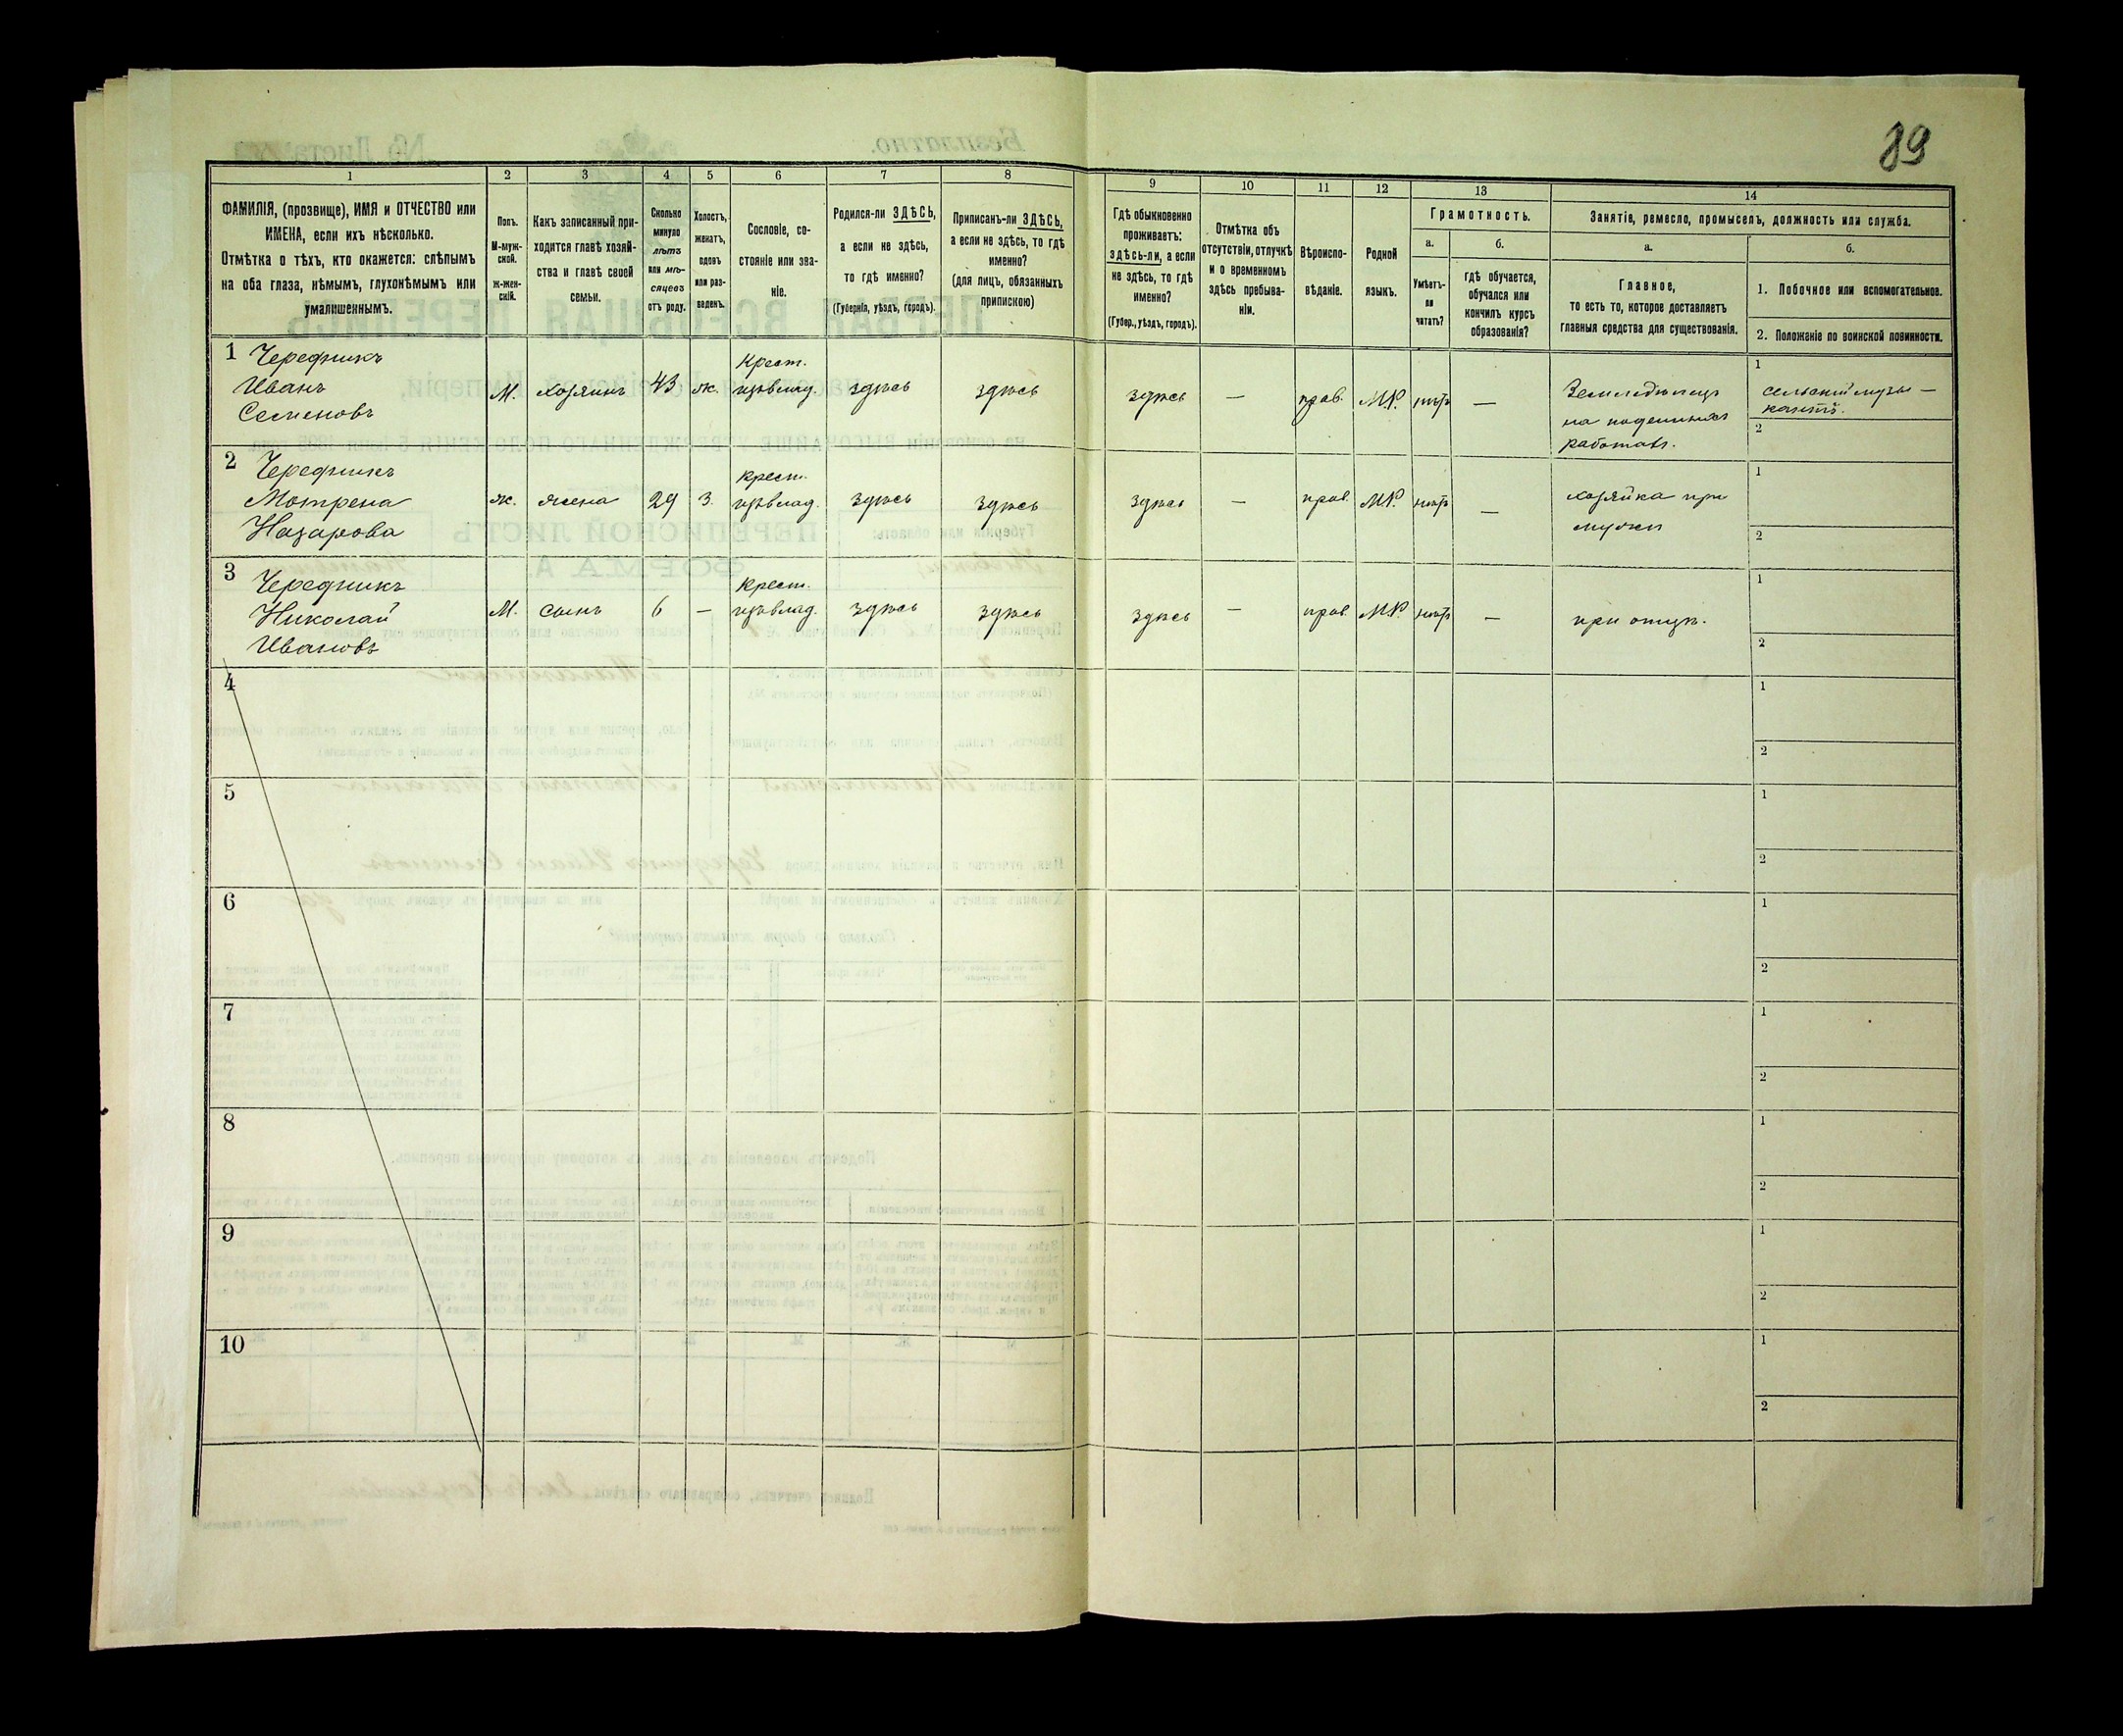 89
1 2 3 4 5 6 7 8 9 10 11 12 13 14
ФАМИЛІЯ, (прозвище), ИМЯ и ОТЧЕСТВО или
ИМЕНА, если ихъ нѣсколько.
Отмѣтка о тѣхъ, кто окажется: слѣпымъ
на оба глаза, нѣмымъ, глухонѣмымъ или
умалишеннымъ.
Полъ.
М-муж-
ской.
ж-жен-
скій.
Какъ записанный при-
ходится главѣ хозяй-
ства и главѣ своей
семьи.
Сколько
минуло
лѣтъ
или мѣ-
сяцевъ
отъ роду.
Холостъ,
женатъ,
вдовъ
или раз-
веденъ.
Сословіе, со-
стояніе или зва-
ніе.
Родился-ли ЗДѢСЬ,
а если не здѣсь,
то гдѣ именно?
(Губернія, уѣздъ, городъ).
Приписанъ-ли ЗДѢСЬ,
а если не здѣсь, то гдѣ
именно?
(для лицъ, обязанныхъ
припискою)
Гдѣ обыкновенно
проживаетъ:
здѣсь-ли, а если
не здѣсь, то гдѣ
именно?
(Губер., уѣздъ, городъ).
Отмѣтка объ
отсутствіи, отлучкѣ
и о временномъ
здѣсь пребыва-
ніи.
Вѣроиспо-
вѣданіе.
Родной
языкъ.
Грамотность.
а.
Умѣетъ-
ли
читать?
б.
гдѣ обучается,
обучался или
кончилъ курсъ
образованія?
Занятіе, ремесло, промыселъ, должность или служба.
а.
Главное,
то есть то, которое доставляетъ
главныя средства для существованія.
б.
1. Побочное или вспомогательное.
2. Положеніе по воинской повинности.
1 Чередникъ
Иванъ
Семеновъ
М. хозяинъ 43 ж.
Крест.
изъ влад.
здѣсь здѣсь здѣсь — прав. М.Р. нѣтъ —
Земледѣлецъ
на поденныхъ
работахъ.
1
сельскій музы-
кантъ.
2
2 Чередникъ
Мотрена
Назарова
ж. жена 29 з.
крест.
изъ влад.
здѣсь здѣсь здѣсь — прав. М.Р. нѣтъ —
хозяйка при
мужѣ
1
2
3 Чередникъ
Николай
Ивановъ
М. сынъ 6 —
крест.
изъ влад.
здѣсь здѣсь здѣсь — прав. М.Р. нѣтъ —
при отцѣ.
1
2
4
1
2
5
1
2
6
1
2
7
1
2
8
1
2
9
1
2
10
1
2